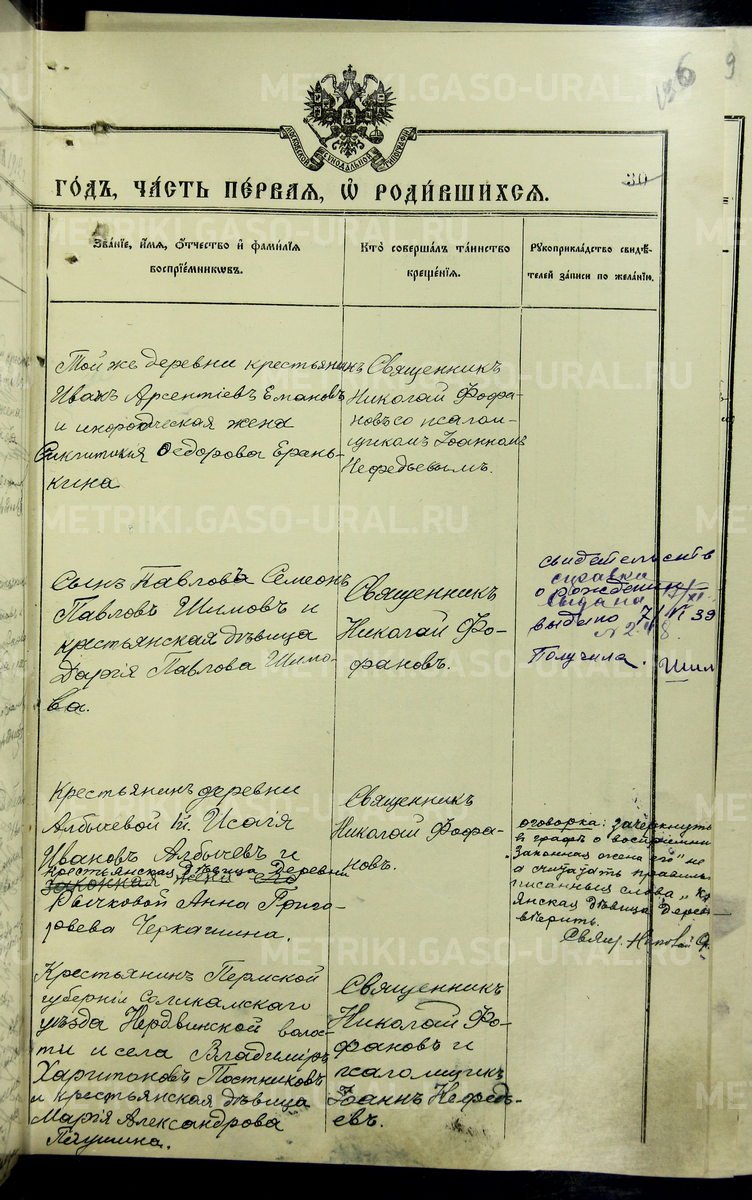 9
156
30
ГО́ДЪ, ЧА́СТЬ ПЕ́РВАЯ, Ѡ҆ РОДИ́ВШИХСѦ.
Зва́нїе, и҆́мѧ, ѻ҆́тчество и҆ фами́лїѧ
воспрїе́мникѡвъ.
Кто̀ соверша́лъ та́инство
креще́нїѧ.
Рукоприкла́дство свидѣ́-
телей за́писи по жела́нїю.
Той же деревни крестьянинъ
Иванъ Арсентіевъ Емановъ
и инородческая жена
Ѳедорова Ерань-
кина
Священникъ
Николай Фофа-
новъ со псалом-
щикомъ Іоанномъ
Нефедьевымъ.
Сынъ Павлова Семеонъ
Павловъ Шимовъ и
крестьянская дѣвица
Дарія Павлова Шимо-
ва.
Священникъ
Николай Фо-
фановъ.
свидетельств
справка
о рождении
выдана
выдано 7/VI 39
Получила. Шим
Крестьянинъ деревни
Албычевой Исаія
Ивановъ Албычевъ и
крестьянская дѣвица деревни
законная жена его
Рычковой Анна Григо-
рьева Черкашина.
Священникъ
Николай Фофа-
новъ.
оговорка: зачеркнутъ
в графѣ о воспріемни
законная жена его" не
а считать правиль
писанныя слова „кр
янская дѣвица дерев-
вѣрить.
Свящ. Николай Ф.
Крестьянинъ Пермской
губерніи Соликамскаго
уѣзда Нердвинской волос-
ти и села Владимиръ
Харитоновъ Постниковъ
и крестьянская дѣвица
Марія Александрова
Паушина.
Священникъ
Николай Фо-
фановъ и
псаломщикъ
Іоаннъ Нефедь-
евъ.
METRIKI.GASO-URAL.RU